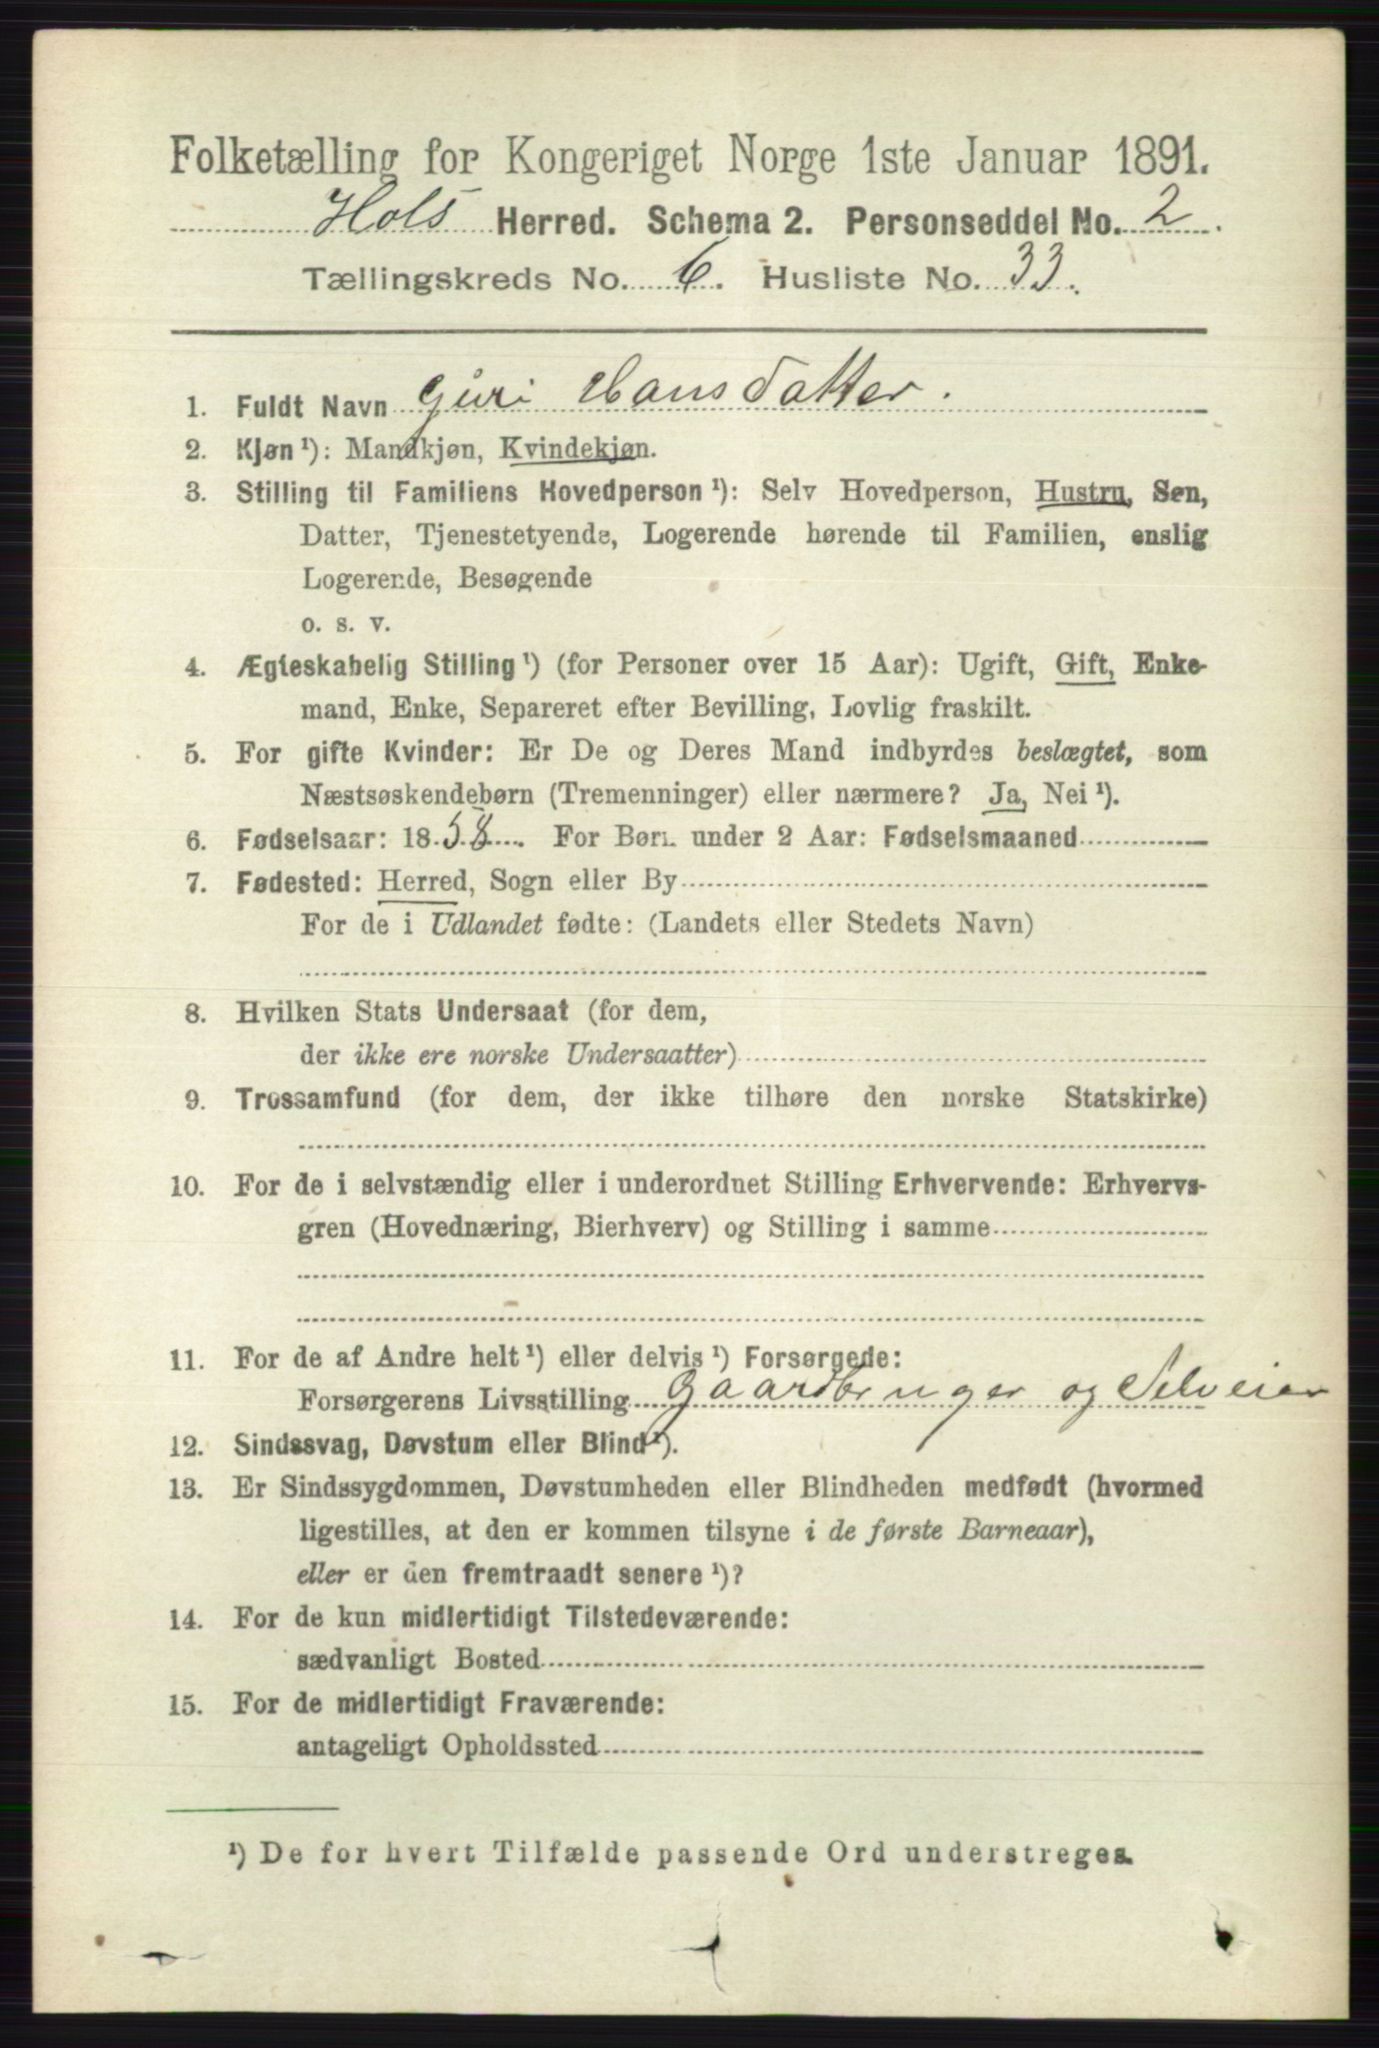 Folketælling for Kongeriget Norge 1ste Januar 1891.
Hols Herred. Schema 2. Personseddel No. 2.
Tællingskreds No. 6. Husliste No. 33.
1. Fuldt Navn Guri Hansdatter.
2. Kjøn¹): Mandkjøn, Kvindekjøn.
3. Stilling til Familiens Hovedperson¹): Selv Hovedperson, Hustru, Søn,
Datter, Tjenestetyende, Logerende hørende til Familien, enslig
Logerende, Besøgende
o. s. v.
4. Ægteskabelig Stilling¹) (for Personer over 15 Aar): Ugift, Gift, Enke-
mand, Enke, Separeret efter Bevilling, Lovlig fraskilt.
5. For gifte Kvinder: Er De og Deres Mand indbyrdes beslægtet, som
Næstsøskendebørn (Tremenninger) eller nærmere? Ja, Nei¹).
6. Fødselsaar: 1858. For Børn under 2 Aar: Fødselsmaaned
7. Fødested: Herred, Sogn eller By
For de i Udlandet fødte: (Landets eller Stedets Navn)
8. Hvilken Stats Undersaat (for dem,
der ikke ere norske Undersaatter)
9. Trossamfund (for dem, der ikke tilhøre den norske Statskirke)
10. For de i selvstændig eller i underordnet Stilling Erhvervende: Erhvervs-
gren (Hovednæring, Bierhverv) og Stilling i samme
11. For de af Andre helt¹) eller delvis¹) Forsørgede:
Forsørgerens Livsstilling Gaardbruger og Selveier
12. Sindssvag, Døvstum eller Blind¹).
13. Er Sindssygdommen, Døvstumheden eller Blindheden medfødt (hvormed
ligestilles, at den er kommen tilsyne i de første Barneaar),
eller er den fremtraadt senere¹)?
14. For de kun midlertidigt Tilstedeværende:
sædvanligt Bosted
15. For de midlertidigt Fraværende:
antageligt Opholdssted
¹) De for hvert Tilfælde passende Ord understreges.